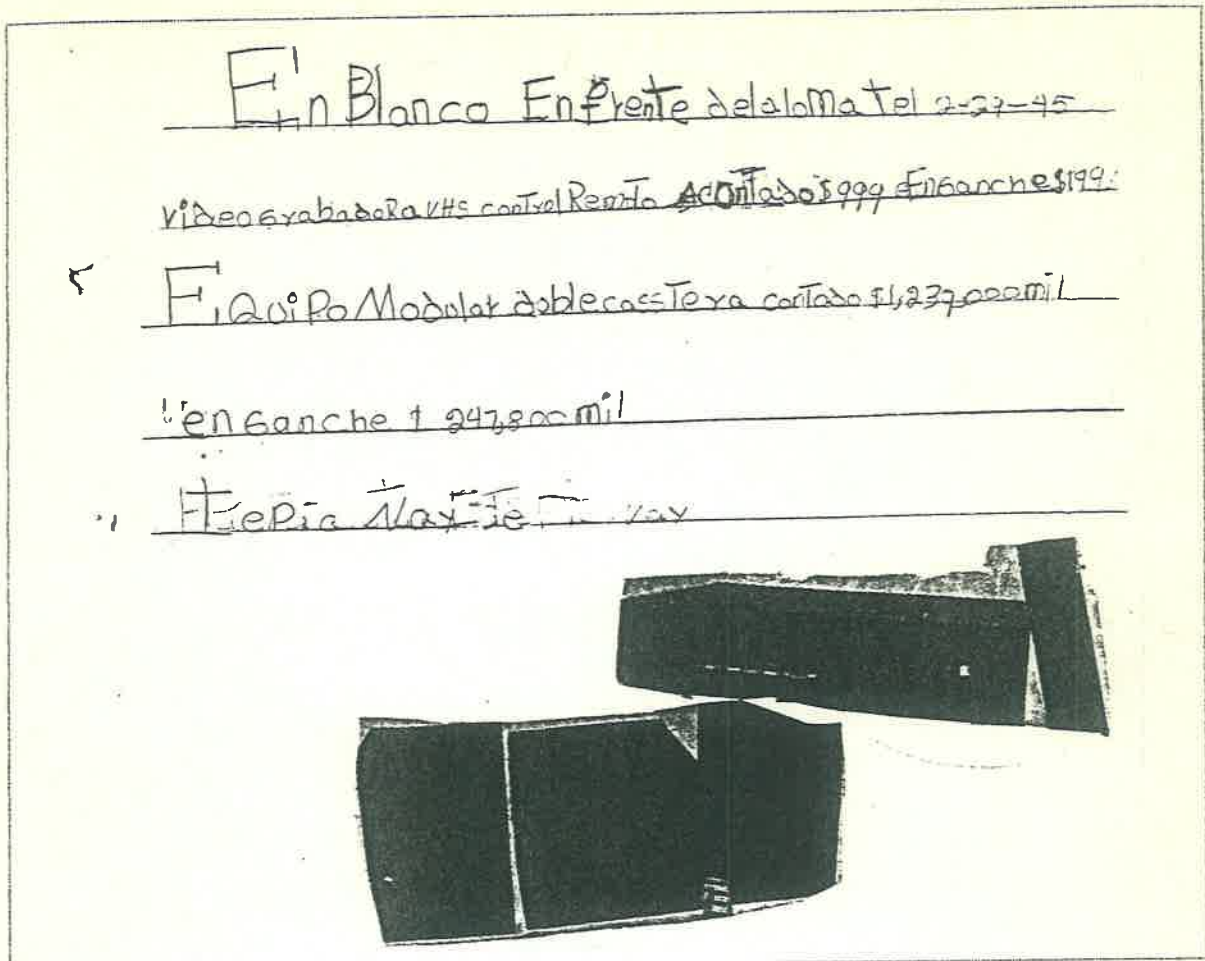 En Blanco Enfrente delaloma Tel 2-27-45
videograbadoRa VHS control Remoto Acontado $999 Enganche $199.
EQuiPo Modular doblecassTera contado $1,237,000mil
enganche $ 247,800mil